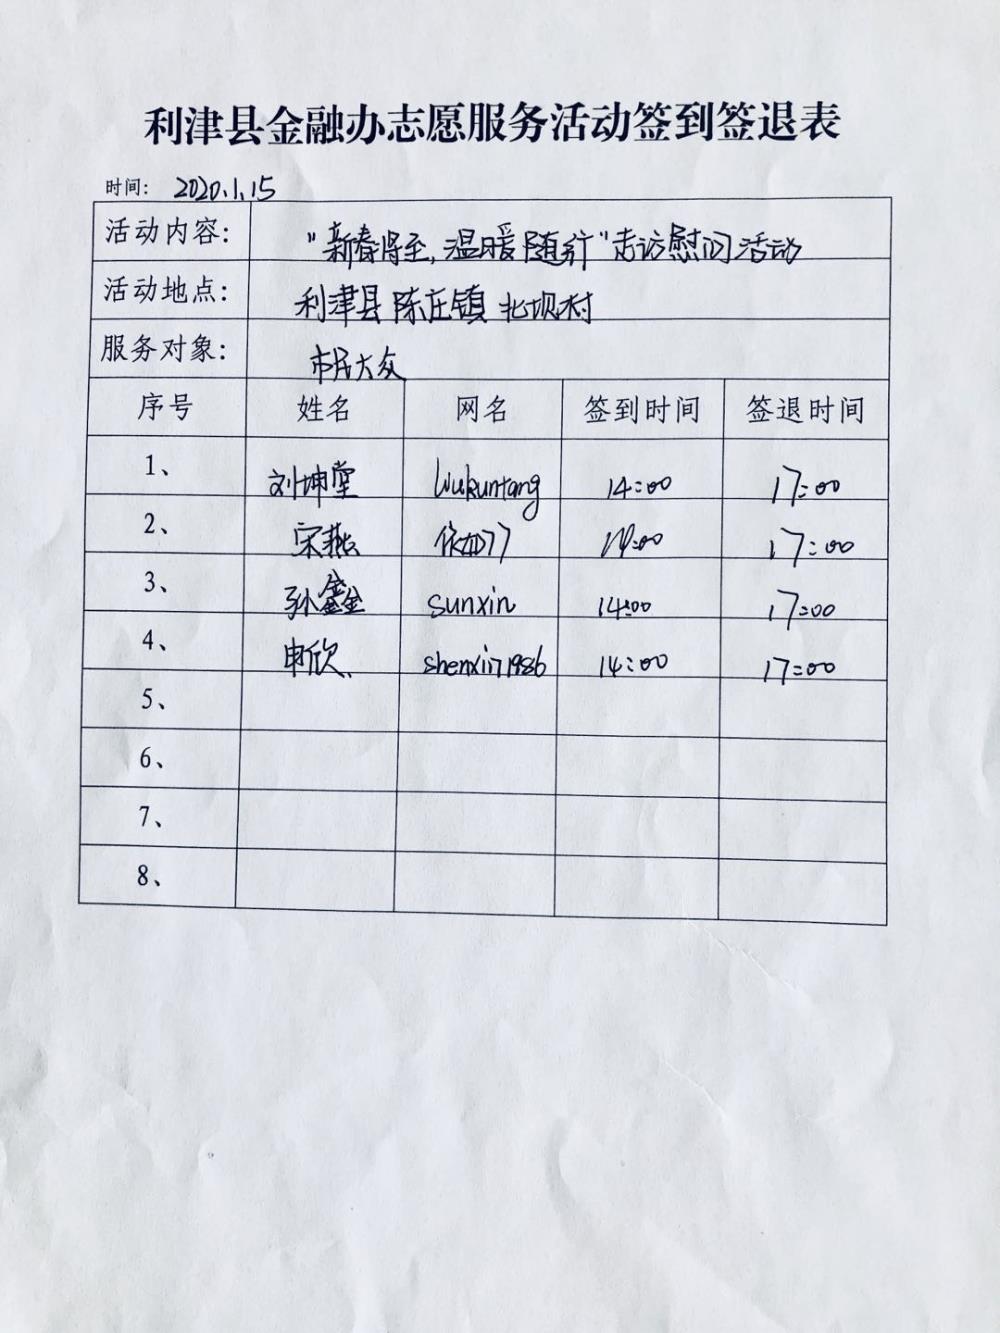 利津县金融办志愿服务活动签到签退表
时间: 2020.1.15
活动内容: "新春将至,温暖随行"走访慰问活动
活动地点: 利津县陈庄镇北坝村
服务对象: 市民大众
序号 姓名 网名 签到时间 签退时间
1、 刘坤堂 liukuntang 14:00 17:00
2、 宋燕 依如77 14:00 17:00
3、 孙鑫 sunxin 14:00 17:00
4、 申欣 shenxin1986 14:00 17:00
5、
6、
7、
8、